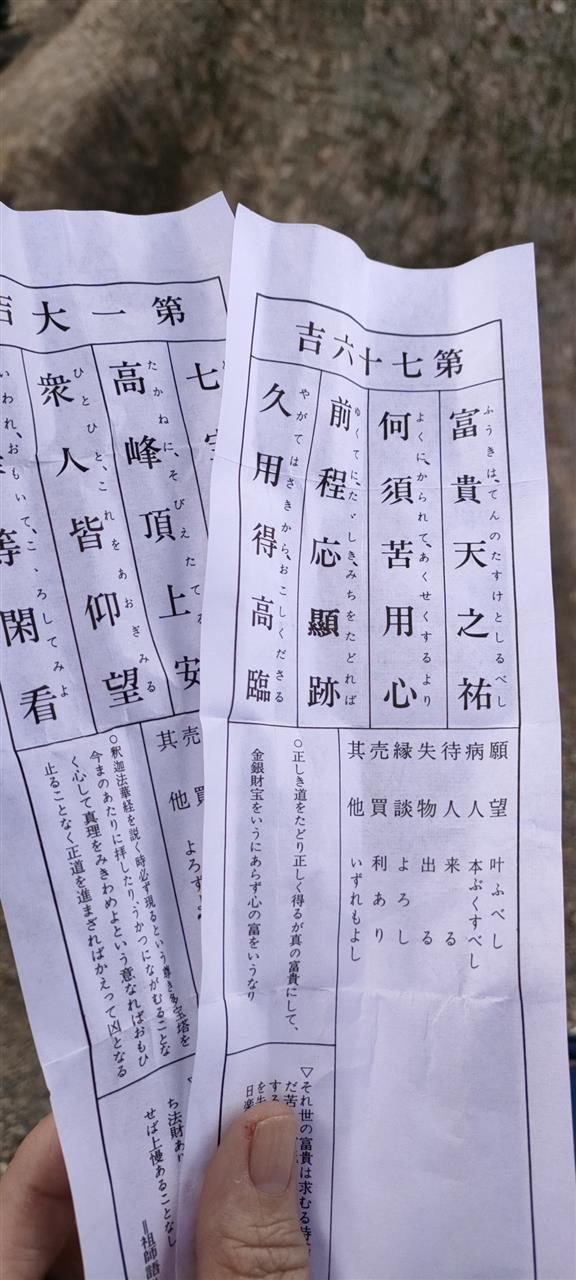 第七十六吉
富貴天之祐
ふうきは、てんのたすけとしるべし
何須苦用心
よくに、かられて、あくせくするより
前程応顯跡
ゆくてに、たゞしき、みちをたどれば
久用得高臨
やがてはさきから、おこしくださる
願望 叶ふべし
病人 本ぷくすべし
待人 来る
失物 出る
縁談 よろし
売買 利あり
其他 いずれもよし
○正しき道をたどり正しく得るが真の富貴にして、
金銀財宝をいうにあらず心の富をいうなり
▽それ世の富貴は求むる時
だ苦
する
を生
日楽
第一大吉
七宝
高峰頂上安
たかねに、そびえたてる
衆人皆仰望
ひとひと、これをあおぎみる
等閑看
いわれ、おもいて、こゝろしてみよ
売買
其他 よろず
○釈迦法華経を説く時必ず現るという尊き多宝塔を
今まのあたりに拝したり、うかつにながむることな
く心して真理をみきわめよという意なればおもひ
止ることなく正道を進まざればかえって凶となる
ち法財あり
せば上慢あることなし
＝祖師語